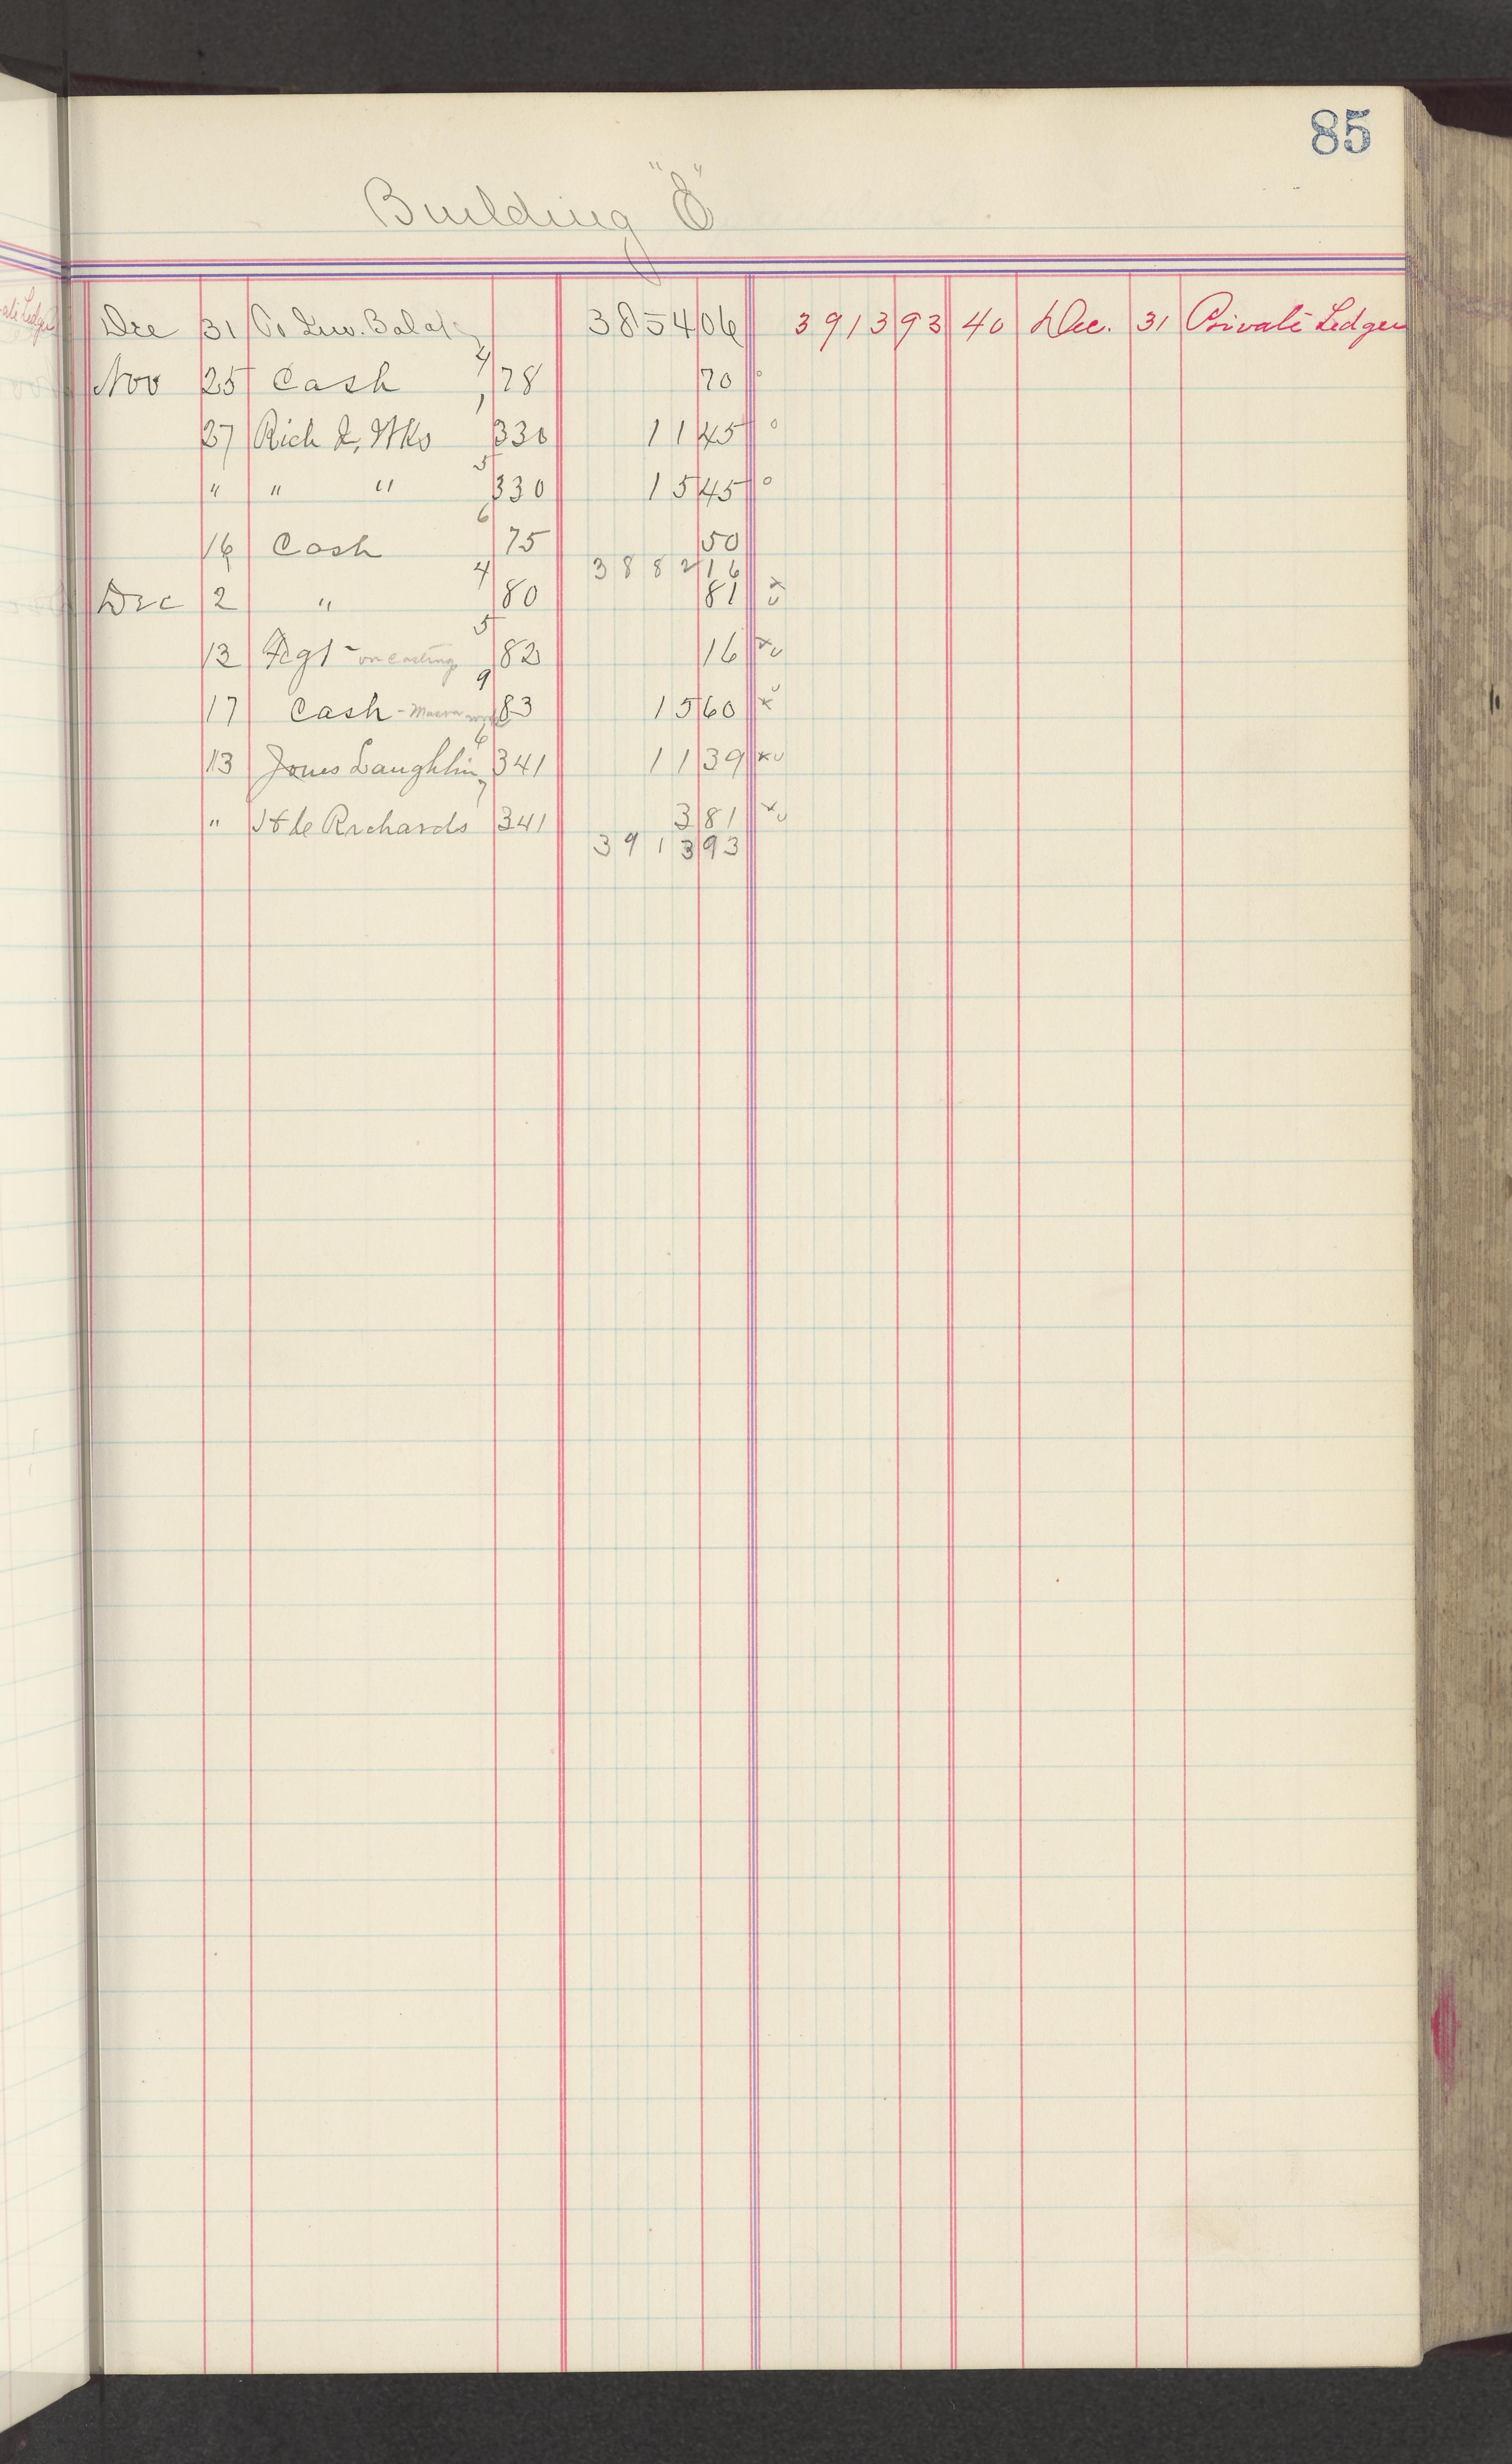 85
Building "O"
Dec 31 Inv. Balce 3854 06 3913 93 40 Dec. 31 Private Ledger
Nov 25 Cash 4 78 70
27 Rich I, Wks 1 330 11 45
" " " 5 330 15 45
16 Cash 6 75 50
3882 16
Dec 2 " 4 80 81
12 Fgt - on casting 5 82 16
17 Cash - Mason 9 83 15 60
13 Jones Laughlin 6 341 11 39
" Richards 7 341 3 81
3913 93